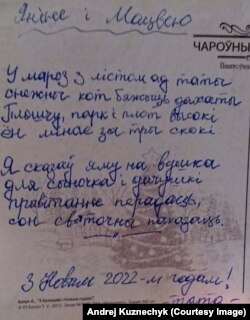 Яніне і Мацвею
ЧАРОЎНЫ
У мароз з лістом ад таты
снежны кот бяжыць дахаты
Плошчу, парк і плот высокі
ён мінае за тры скокі
Я сказаў яму на вушка
для сыночка і дачушкі
прывітанне перадаць,
сон святочны паказаць.
З Новым 2022-м годам!
тата
Andrej Kuznechyk (Courtesy Image)